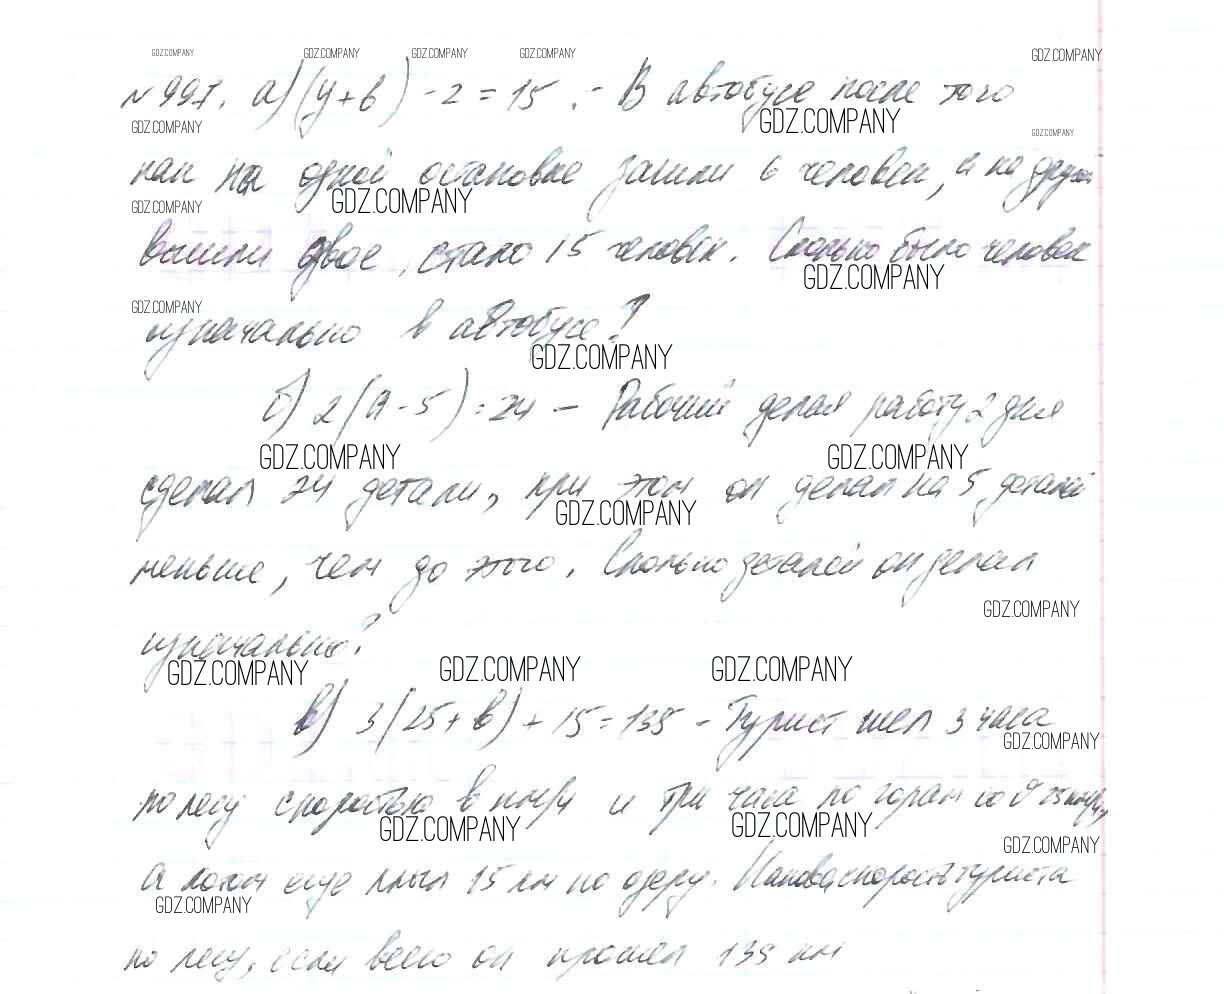 GDZ.COMPANY GDZ.COMPANY GDZ.COMPANY GDZ.COMPANY GDZ.COMPANY
№997. а) (y+6) -2 = 15 :- В автобусе после того
GDZ.COMPANY GDZ.COMPANY GDZ.COMPANY
как на одной остановке зашли 6 человек, а на другой
GDZ.COMPANY GDZ.COMPANY
вышли двое, стало 15 человек. Сколько было человек
GDZ.COMPANY
GDZ.COMPANY
изначально в автобусе?
GDZ.COMPANY
б) 2(a-5)=24 – Рабочий делая работу 2 дня
GDZ.COMPANY GDZ.COMPANY
сделал 24 детали, при этом он делал на 5 деталей
GDZ.COMPANY
меньше, чем до этого. Сколько деталей он делал
GDZ.COMPANY
изначально?
GDZ.COMPANY GDZ.COMPANY GDZ.COMPANY
в) 3(25+в)+15=138 - Турист шел 3 часа
GDZ.COMPANY
по лесу скоростью в км/ч и три часа по горам со 25 км/ч,
GDZ.COMPANY GDZ.COMPANY
GDZ.COMPANY
а потом еще плыл 15 км по озеру. Какова скорость туриста
GDZ.COMPANY
по лесу, если всего он прошел 138 км